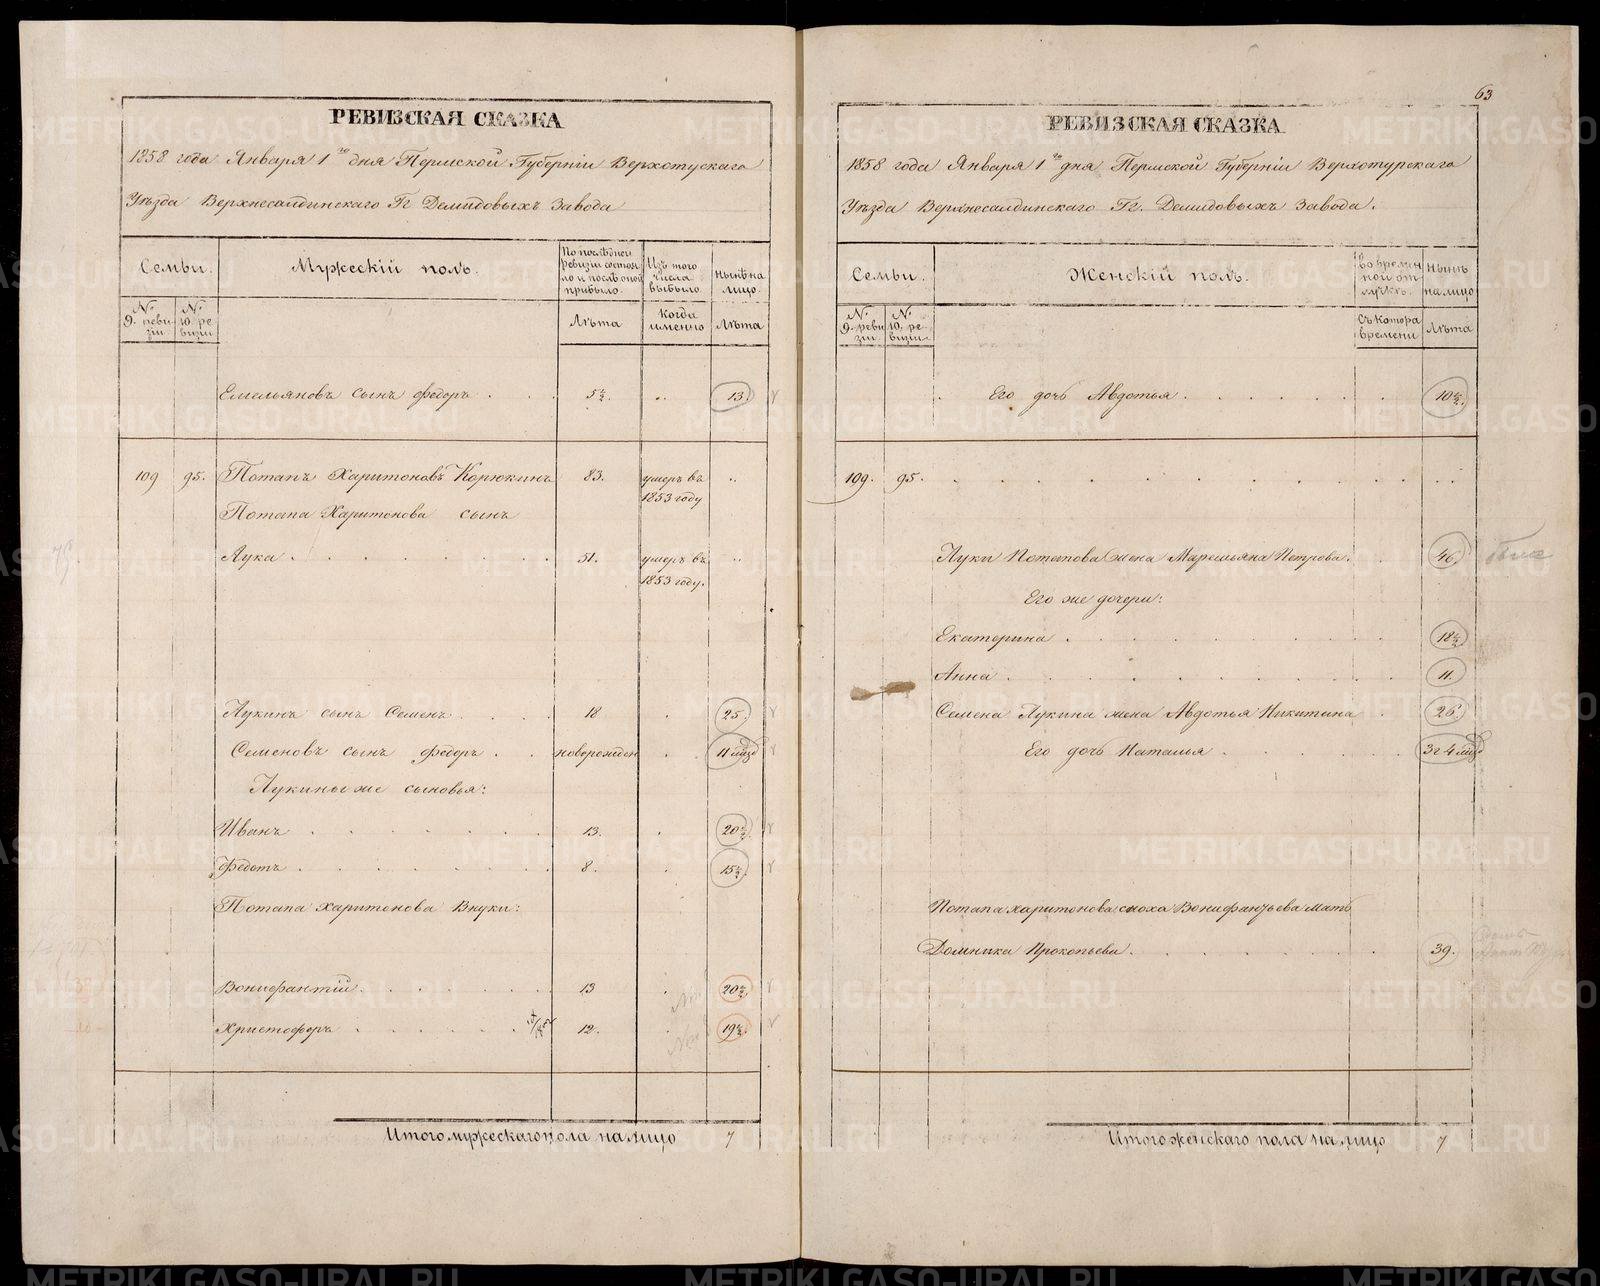 63
РЕВИЗСКАЯ СКАЗКА
1858 года Января 1го дня Пермской Губерніи Верхотускаго
Уѣзда Верхнесалдинскаго Гг Демидовыхъ Завода
Семьи.
Мужескій полъ.
По послѣдней ревизіи состояло и послѣ оной прибыло.
Изъ того числа выбыло.
нынѣ на лицо.
№ 9. ревизіи
№ 10. ревизіи
Лѣта
когда именно
Лѣта
Емельяновъ сынъ Федоръ . . . 5½. .. 13.
109 95. Потапъ Харитоновъ Корюкинъ 83. умеръ въ 1853 году ..
Потапа Харитонова сынъ
Лука . . . . . . . 51. умеръ въ 1853 году. ..
Лукинъ сынъ Семенъ . . . . 18 . 25.
Семеновъ сынъ Федоръ . . новорожден . 11 мцд
Лукины же сыновья:
Иванъ . . . . . . 13. . 20½.
Федотъ . . . . . . . 8. . 15½.
Потапа Харитонова Внуки:
Вонифантій . . . . . . 13 . 20½.
Христофоръ . . . . . . 12. . 19½.
Итого мужескаго пола на лицо 7
РЕВИЗСКАЯ СКАЗКА
1858 года Января 1го дня Пермской Губерніи Верхотурскаго
Уѣзда Верхнесалдинскаго Гг. Демидовыхъ Завода.
Семьи.
Женскій полъ.
во временной отлучкѣ.
Нынѣ на лицо
№ 9. ревизіи
№ 10. ревизіи
Съ котора времени
Лѣта
Его дочь Авдотья . . . . . . 10½.
109. 95. . . . . . . . . . . . .
Луки Потапова жена Маремьяна Петрова. . 46.
Его же дочери:
Екатерина . . . . . . . . . 18½
Анна . . . . . . . . . . 11.
Семена Лукина жена Авдотья Никитина . 26.
Его дочь Наталья . . . . . . 3 г 4 мцд
Потапа Харитонова сноха Вонифантьева мать
Домника Прокопьева . . . . . . . 39.
Итого женскаго пола на лицо 7
METRIKI.GASO-URAL.RU